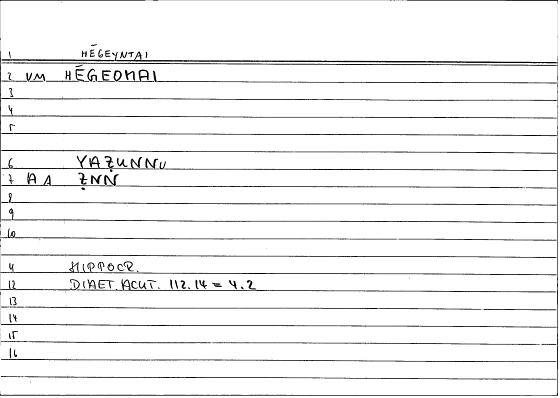 1 HĒGEYNTAI
2 VM HĒGEOMAI
3
4
5
6 YAẒUNNU
7 A A ẒNN
8
9
10
11 HIPPOCR.
12 DIAET. ACUT. 112.14 = 4.2
13
14
15
16